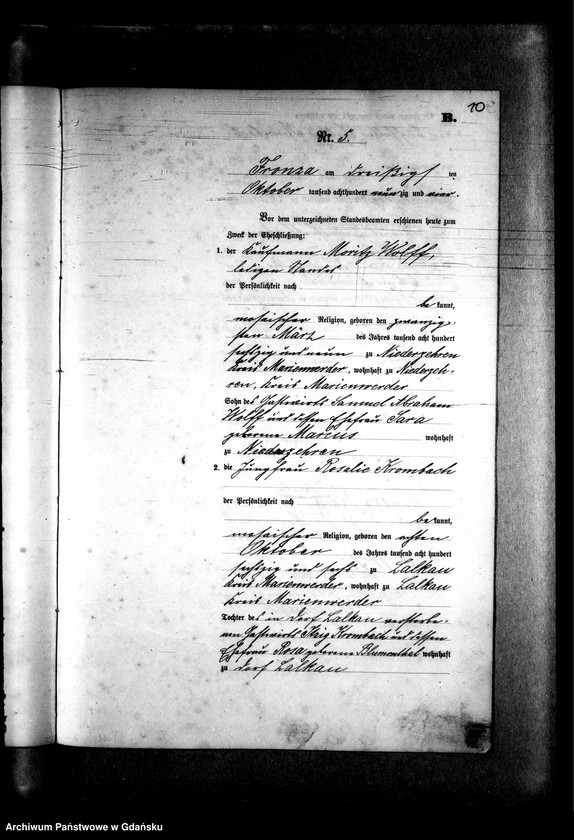 10
B.
Nr. 5.
Fronza am dreißigs ten
Oktober tausend achthundert neunzig und vier.
Vor dem unterzeichneten Standesbeamten erschienen heute zum
Zweck der Eheschließung:
1. der Kaufmann Moritz Wolff,
ledigen Standes
der Persönlichkeit nach
be kannt,
mosaischer Religion, geboren den zwanzig-
sten März des Jahres tausend acht hundert
sechzig und neun zu Niederzehren
Kreis Marienwerder, wohnhaft zu Niederzeh-
ren, Kreis Marienwerder
Sohn des Gastwirts Samuel Abraham
Wolff und dessen Ehefrau Sara
geborene Marcus wohnhaft
zu Niederzehren
2. die Jungfrau Rosalie Krombach
der Persönlichkeit nach
be kannt,
mosaischer Religion, geboren den achten
Oktober des Jahres tausend acht hundert
sechzig und sechs zu Lalkau
Kreis Marienwerder, wohnhaft zu Lalkau
Kreis Marienwerder
Tochter des in Dorf Lalkau verstorbe-
nen Gastwirts Itzig Krombach und dessen
Ehefrau Rosa geborene Blumenthal wohnhaft
zu Dorf Lalkau
Archiwum Państwowe w Gdańsku